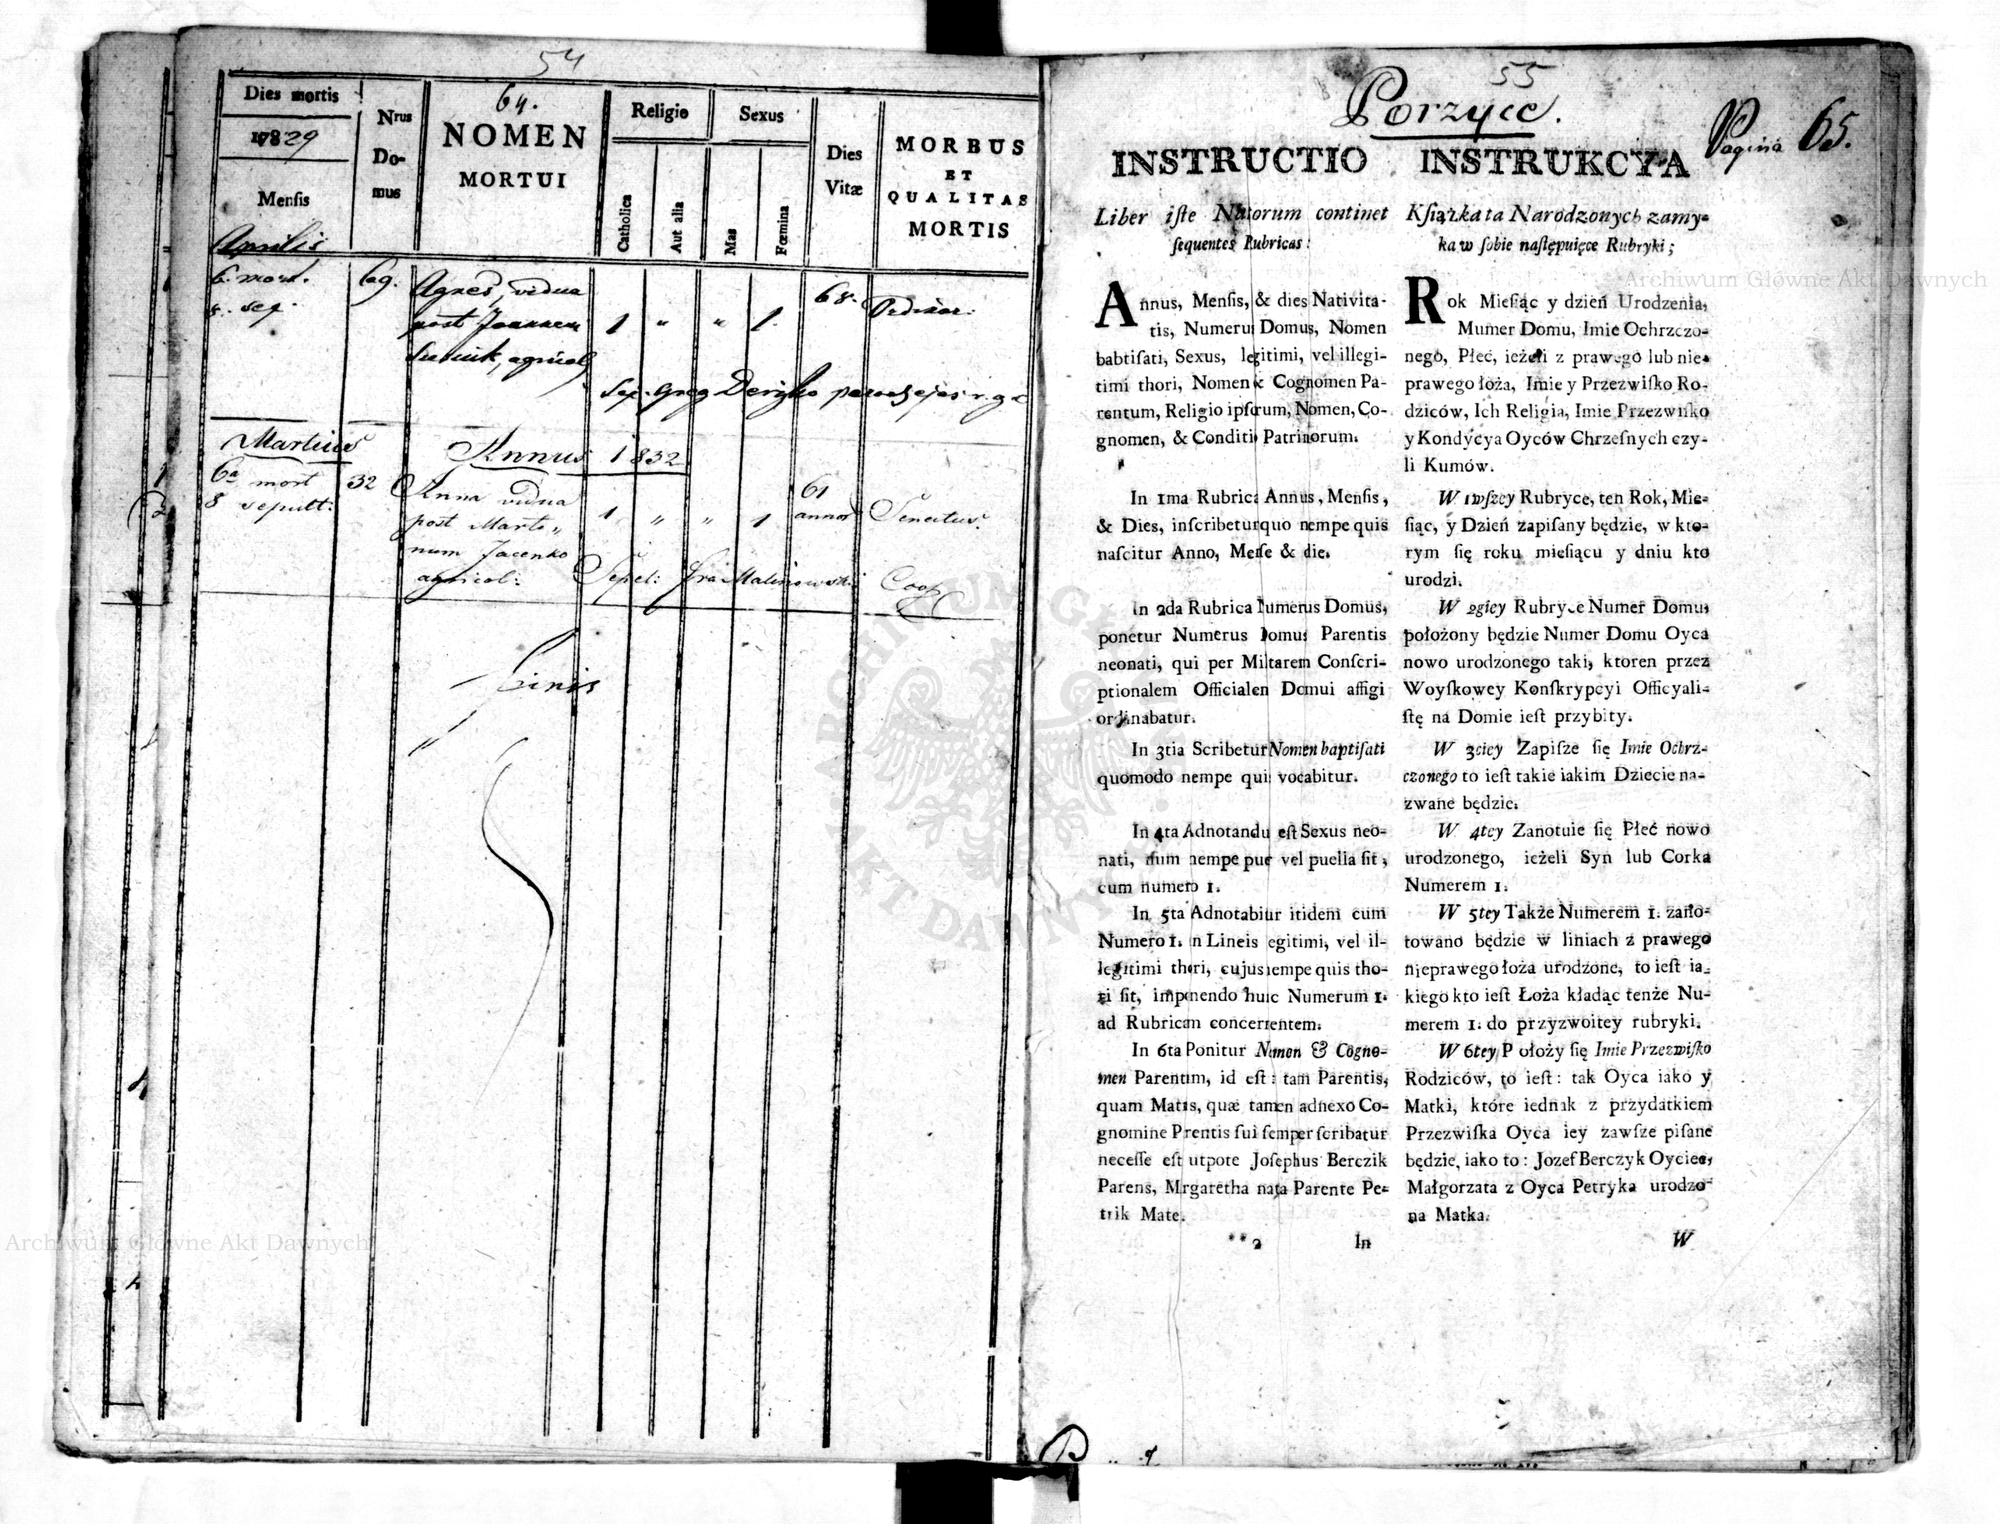 54
Dies mortis
17829
Mensis
Aprilis
Nrus
Do-
mus
64.
NOMEN
MORTUI
Religio
Catholica
Aut alia
Sexus
Mas
Fœmina
Dies
Vitæ
MORBUS
ET
QUALITAS
MORTIS
6. mort.
8. sep.
69.
Agnes, vidua
post Joannem
agricol
1 " " 1.
68.
Ordinar:
Sep. Greg
Martius
Annus 1832
6a mort
8 sepult:
32
Anna vidua
post Marti„
num Jacenko
agricol:
1 " " 1
61
annor
Senectus.
Sepel: Malinowski Coop
Finis
55
Porzyce.
Pagina 65.
INSTRUCTIO
Liber iste Natorum continet
sequentes Rubricas:
Annus, Mensis, & dies Nativita-
tis, Numerus Domus, Nomen
babtisati, Sexus, legitimi, vel illegi-
timi thori, Nomen & Cognomen Pa-
rentum, Religio ipsorum, Nomen, Co-
gnomen, & Conditio Patrinorum.
In 1ma Rubrica Annus, Mensis,
& Dies, inscribetur quo nempe quis
nascitur Anno, Mense & die.
In 2da Rubrica Numerus Domus,
ponetur Numerus Domus Parentis
neonati, qui per Militarem Conscri-
ptionalem Officialem Domui affigi
ordinabatur.
In 3tia Scribetur Nomen baptisati
quomodo nempe quis vocabitur.
In 4ta Adnotandus est Sexus neo-
nati, num nempe puer vel puella sit,
cum numero 1.
In 5ta Adnotabitur itidem cum
Numero 1. in Lineis legitimi, vel il-
legitimi thori, cujus nempe quis tho-
ri sit, imponendo huic Numerum 1.
ad Rubricam concernentem.
In 6ta Ponitur Nomen & Cogno-
men Parentum, id est: tam Parentis,
quam Matris, quæ tamen adnexo Co-
gnomine Parentis sui semper scribatur
necesse est utpote Josephus Berczik
Parens, Margaretha nata Parente Pe-
trik Mater.
**2 In
INSTRUKCYA
Książka ta Narodzonych zamy-
ka w sobie następuięce Rubryki;
Rok Miesiąc y dzień Urodzenia,
Mumer Domu, Imie Ochrzczo-
nego, Płeć, ieżeli z prawego lub nie-
prawego łoża, Imie y Przezwisko Ro-
dziców, Ich Religia, Imie Przezwisko
y Kondycya Oyców Chrzesnych czy-
li Kumów.
W 1wszey Rubryce, ten Rok, Mie-
siąc, y Dzień zapisany będzie, w kto-
rym się roku miesiącu y dniu kto
urodzi.
W 2giey Rubryce Numer Domu,
położony będzie Numer Domu Oyca
nowo urodzonego taki, ktoren przez
Woyskowey Konskrypcyi Officyali-
stę na Domie iest przybity.
W 3ciey Zapisze się Imie Ochrz-
czonego to iest takie iakim Dziecie na-
zwane będzie.
W 4tey Zanotuie się Płeć nowo
urodzonego, ieżeli Syn lub Corka
Numerem 1.
W 5tey Także Numerem 1. zano-
towano będzie w liniach z prawego
nieprawego łoża urodzone, to iest ia-
kiego kto iest Łoża kładąc tenże Nu-
merem 1. do przyzwoitey rubryki.
W 6tey Położy się Imie Przezwisko
Rodziców, to iest: tak Oyca iako y
Matki, które iednak z przydatkiem
Przezwiska Oyca iey zawsze pisane
będzie, iako to: Jozef Berczyk Oyciec,
Małgorzata z Oyca Petryka urodzo-
na Matka.
W
Archiwum Główne Akt Dawnych
Archiwum Główne Akt Dawnych
ARCHIWUM GŁÓWNE · AKT DAWNYCH ·